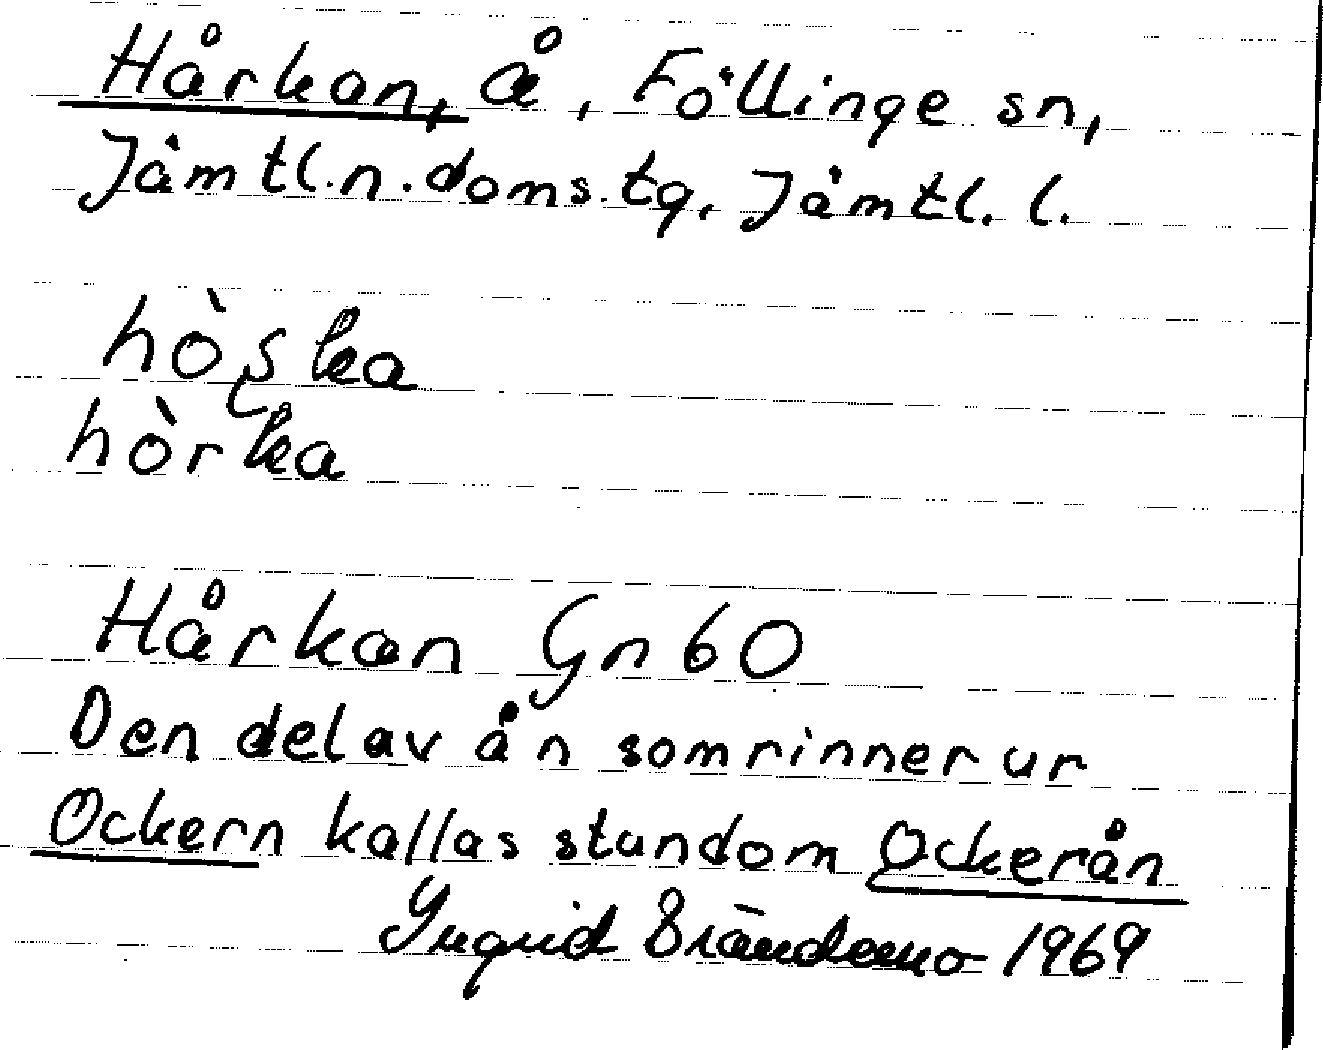 Hårkan, å, Föllinge sn,
Jämtl.n.doms.tg, Jämtl. l.
hò̀ʂka
hòrka
Hårkan Gn 60
Den del av ån som rinner ur
Ockern kallas stundom Ockerån
Ingrid Brändemo 1969